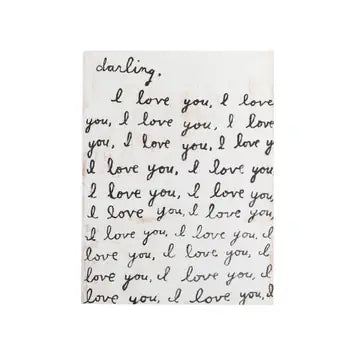 darling,
I love you, I love
you, I love you, I love
you, I love you, I love
I love you, I love you,
I love you, I love you,
I love you, I love you,
I love you, I love
you, I love you, I
love you, I love you,
love you, I love you,
love you, I love you, I